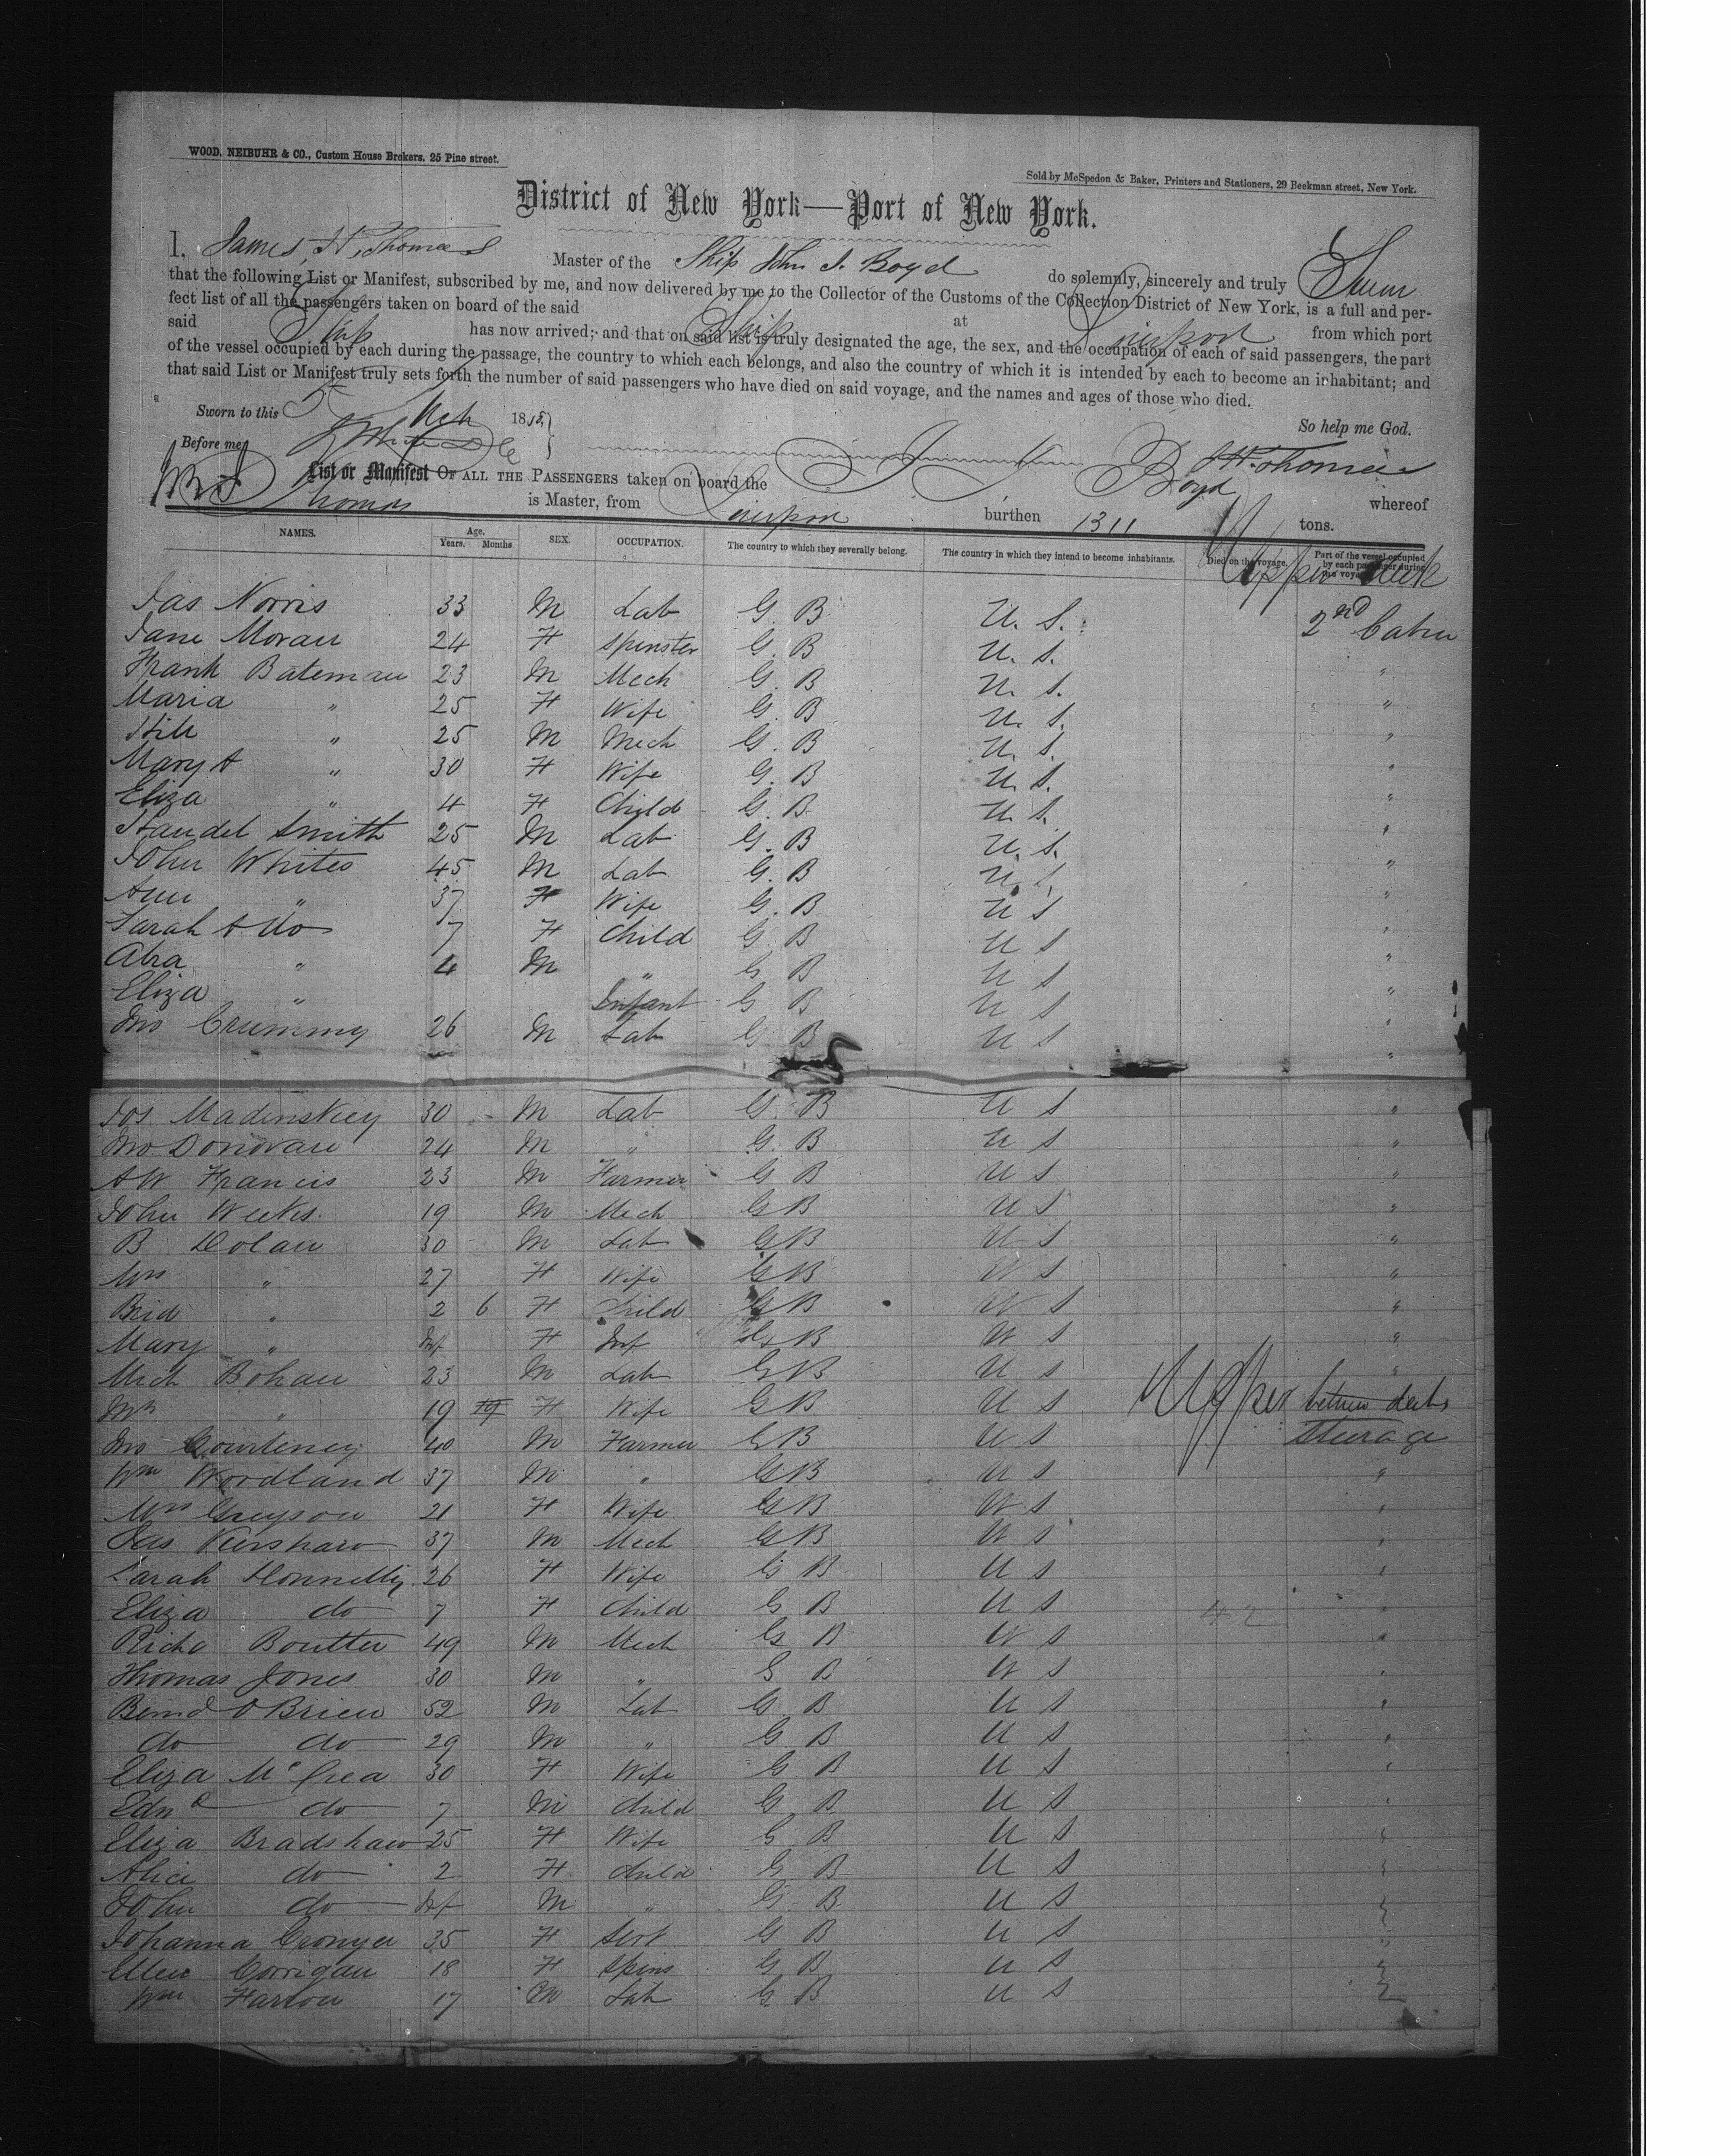 WOOD, NEIBUHR & CO., Custom House Brokers, 25 Pine street.
Sold by McSpedon & Baker, Printers and Stationers, 29 Beekman street, New York.
District of New York—Port of New York.
I, James, H, Thomas Master of the Ship John J. Boyd do solemnly, sincerely and truly Swear
that the following List or Manifest, subscribed by me, and now delivered by me to the Collector of the Customs of the Collection District of New York, is a full and per-
fect list of all the passengers taken on board of the said Ship at Liverpool from which port
said Ship has now arrived; and that on said list is truly designated the age, the sex, and the occupation of each of said passengers, the part
of the vessel occupied by each during the passage, the country to which each belongs, and also the country of which it is intended by each to become an inhabitant; and
that said List or Manifest truly sets forth the number of said passengers who have died on said voyage, and the names and ages of those who died.
Sworn to this 5 Mch 18 So help me God.
Before me J H Thomas
List or Manifest OF ALL THE PASSENGERS taken on board the J J Boyd whereof
Thomas is Master, from Liverpool burthen 1311 tons.
NAMES. Age. Years. Months. SEX. OCCUPATION. The country to which they severally belong. The country in which they intend to become inhabitants. Died on the voyage. Part of the vessel occupied by each passenger during the voyage.
Upper deck
Jas Norris 33 M Lab G. B U. S. 2nd Cabin
Jane Moran 24 F Spinster G. B U. S. "
Frank Bateman 23 M Mech G. B U. S. "
Maria " 25 F Wife G. B U. S. "
" 25 M Mech G. B U. S. "
Mary A " 30 F Wife G. B U. S. "
Eliza " 4 F Child G. B U. S. "
Smith 25 M Lab G. B U. S. "
John Whites 45 M Lab G. B U. S. "
Ann " 37 F Wife G. B U S "
Sarah A Do 7 F Child G B U S "
Abra " 4 M " G B U S "
Eliza " Infant G B U S "
Jno Crummy 26 M Lab G B U S "
Jos 30 M Lab G. B U S "
Jno Donovan 24 M " G. B U S "
A W Francis 23 M Farmer G B U S "
John Weeks. 19 M Mech G B U S "
B Dolan 30 M Lab G B U S "
Mrs " 27 F Wife G B U S "
Brid " 2 6 F Child G B U S "
Mary " Inf F Inf G B U S "
Mich Bohan 23 M Lab G B U S "
Mrs " 19 19 F Wife G B U S Upper between decks
Jno Courteney 40 M Farmer G B U S Steerage
Wm Woodland 37 M " G B U S "
Mrs Greyson 21 F Wife G B U S "
Jas Kershaw 37 M Mech G B U S "
Sarah Donnelly 26 F Wife G B U S "
Eliza do 7 F Child G B U S 42 "
Richd Boutter 49 M Mech G B U S "
Thomas Jones 30 M " G B U S "
Bernd O Brien 52 M Lab G B U S "
do do 29 M " G B U S "
Eliza McCrea 30 F Wife G B U S "
Edwd do 7 M Child G B U S "
Eliza Bradshaw 25 F Wife G B U S "
Alice do 2 F Child G B U S "
John do Inf M " G B U S "
Johanna 35 F Servt G B U S "
Ellen Corrigan 18 F Spins G B U S "
Wm 17 M Lab G. B U S "